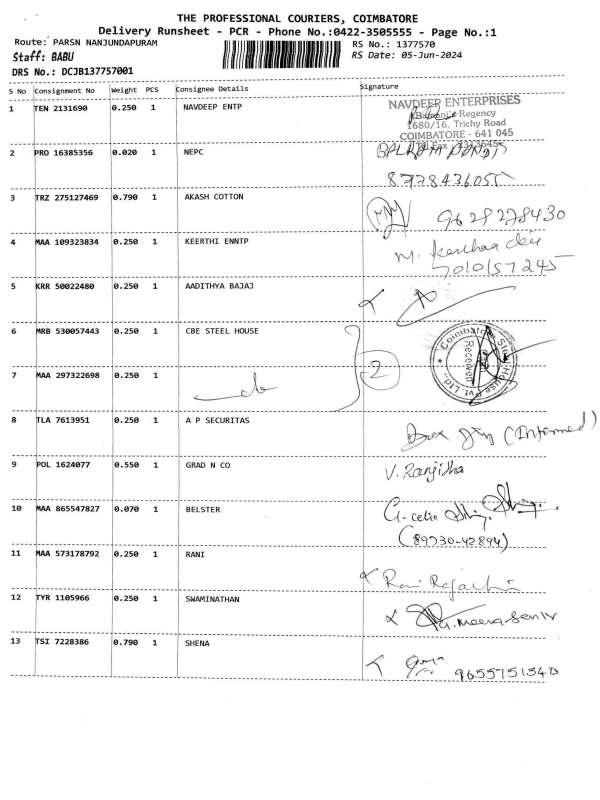 THE PROFESSIONAL COURIERS, COIMBATORE
Delivery Runsheet - PCR - Phone No.:0422-3505555 - Page No.:1
Route: PARSN NANJUNDAPURAM RS No.: 1377570
Staff: BABU RS Date: 05-Jun-2024
DRS No.: DCJB137757001
S No Consignment No Weight PCS Consignee Details Signature
1 TEN 2131690 0.250 1 NAVDEEP ENTP
NAVDEEP ENTERPRISES
Regency
1680/16, Trichy Road
COIMBATORE - 641 045
2 PRO 16385356 0.020 1 NEPC
3 TRZ 275127469 0.790 1 AKASH COTTON
9629278430
4 MAA 109323834 0.250 1 KEERTHI ENNTP
M.
7010157245
5 KRR 50022480 0.250 1 AADITHYA BAJAJ
6 MRB 530057443 0.250 1 CBE STEEL HOUSE
Coimbatore Steel House Pvt. Ltd.,
Received
2
7 MAA 297322698 0.250 1
8 TLA 7613951 0.250 1 A P SECURITAS
(Informed)
9 POL 1624077 0.550 1 GRAD N CO
V. Ranjitha
10 MAA 865547827 0.070 1 BELSTER
(89730-42894)
11 MAA 573178792 0.250 1 RANI
Rani
12 TYR 1105966 0.250 1 SWAMINATHAN
13 TSI 7228386 0.790 1 SHENA
9655751540